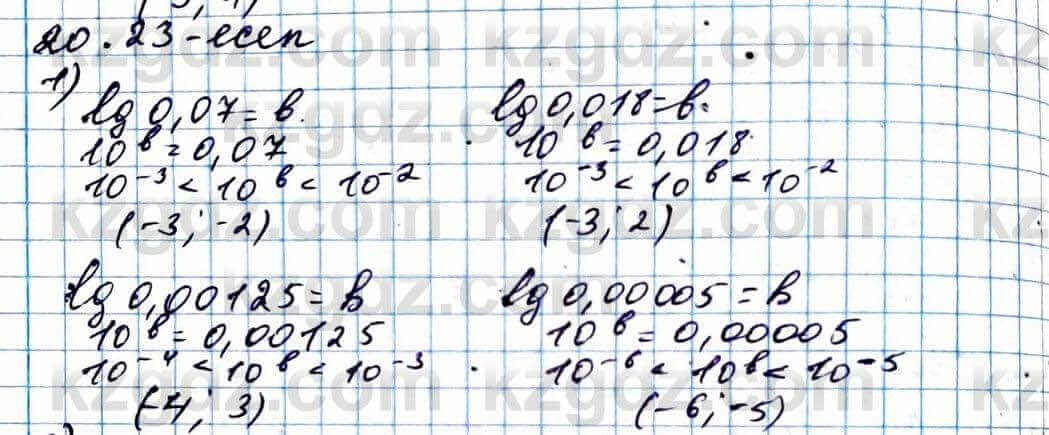 20.23-есеп
1)
lg 0,07 = b.
10^b = 0,07
10^-3 < 10^b < 10^-2
(-3; -2)
lg 0,018 = b.
10^b = 0,018
10^-3 < 10^b < 10^-2
(-3; 2)
lg 0,00125 = b
10^b = 0,00125
10^-4 < 10^b < 10^-3
(-4; 3)
lg 0,00005 = b
10^b = 0,00005
10^-6 < 10^b < 10^-5
(-6; -5)
kzgdz.com